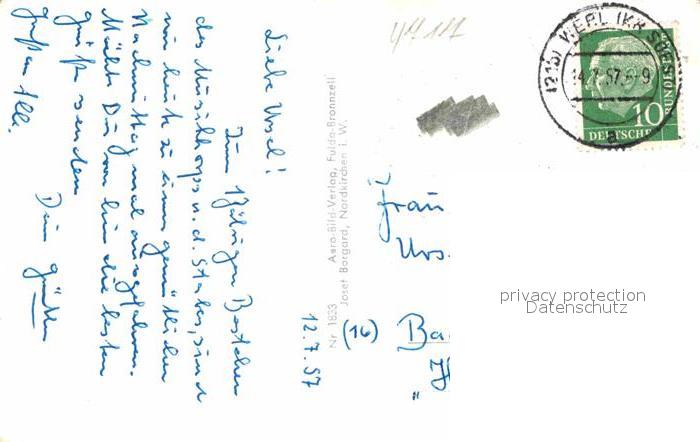 Liebe Ursel!
Zum 1jährigen Bestehen
des Musikkorps u. d. Stabes, sind
wir heute zu einem gemütlichen
Nachmittag mal ausgefahren.
Möchte Dir von hier die besten
Grüße senden
Dein
Gruß an Alle.
12.7.57
Nr 1833 Aero-Bild-Verlag, Fulda-Bronnzell
Josef Borgard, Nordkirchen i. W.
4414
(21b) WERL (KR SOEST)
14.7.57
10
DEUTSCHE
BUNDESPOST
Frau
Urs.
(16) Ba
privacy protection
Datenschutz